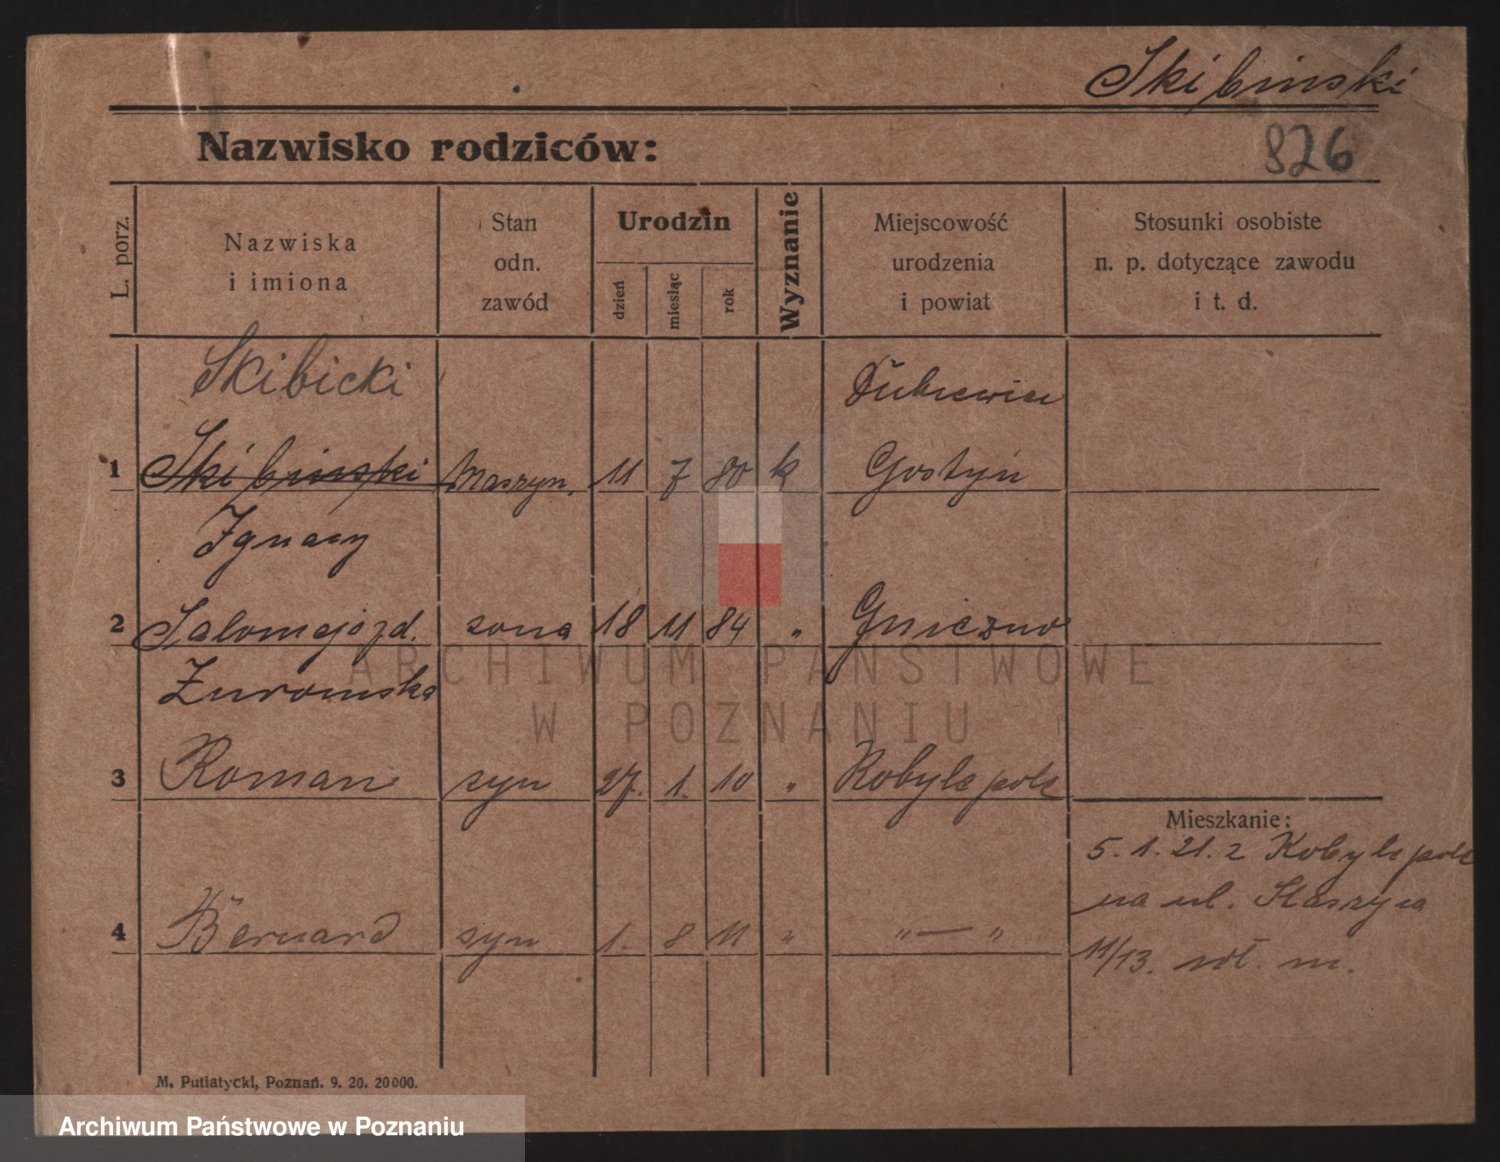 Skibinski
826
Nazwisko rodziców:
L. porz.
Nazwiska
i imiona
Stan
odn.
zawód
Urodzin
dzień
miesiąc
rok
Wyznanie
Miejscowość
urodzenia
i powiat
Stosunki osobiste
n. p. dotyczące zawodu
i t. d.
Skibicki
1 Skibinski Maszyn. 11 7 80 k Gostyń
Ignacy
2 Salomea żona 18 11 84 " Gniezno
Żuromska
3 Roman syn 27. 1. 10 " Kobylepole
Mieszkanie:
5. 1. 21. z Kobylepole
na ul. Staszyca
4 Bernard syn 1. 8 11 " " — "
11/13. wł. m.
M. Putiatycki, Poznań. 9. 20. 20000.
ARCHIWUM PAŃSTWOWE
W POZNANIU
Archiwum Państwowe w Poznaniu